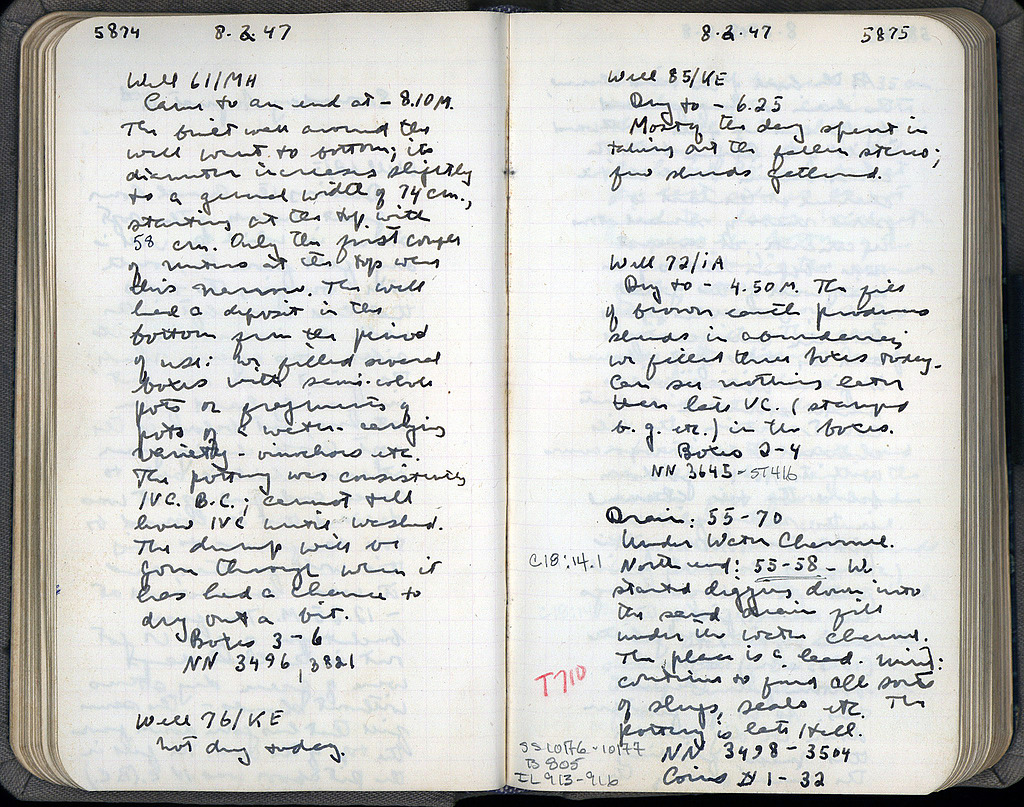 5874
8.2.47
Well 61/MH
Came to an end at - 8.10 M.
The built wall around the
well went to bottom; its
diameter increases slightly
to a general width of 74 cm.,
starting at the top with
58 cm. Only the first couple
of meters at the top were
this narrow. The well
had a deposit in the
bottom from the period
of use: we filled several
boxes with semi-whole
pots or fragments of
pots of a water-carrying
variety - oinochoes etc.
The pottery was consistently
IV C. B.C.; cannot tell
how IVC until washed.
The dump will be
gone through when it
has had a chance to
dry out a bit.
Boxes 3-6
NN 3496, 3821
Well 76/KE
Not dug today.
8.2.47
5875
Well 85/KE
Dug to - 6.25
Most of the day spent in
taking out the fallen stones;
few sherds gathered.
Well 72/IA
Dug to - 4.50 M. The fill
of brown earth produces
sherds in abundance;
we filled three boxes today.
Can see nothing later
than late VC. (stamped
b. g. etc.) in the boxes.
Boxes 2-4
NN 3645 - ST416
Drain: 55-70
Under Water Channel.
C18:14.1
North end: 55-58 - We
started digging down into
the sand drain fill
under the water channel.
The place is a lead mine:
T710
continue to find all sorts
of slugs, seals etc. The
pottery is late Hell.
SS 10176-10177
B 805
IL 913-916
NN 3498-3504
Coins 1-32